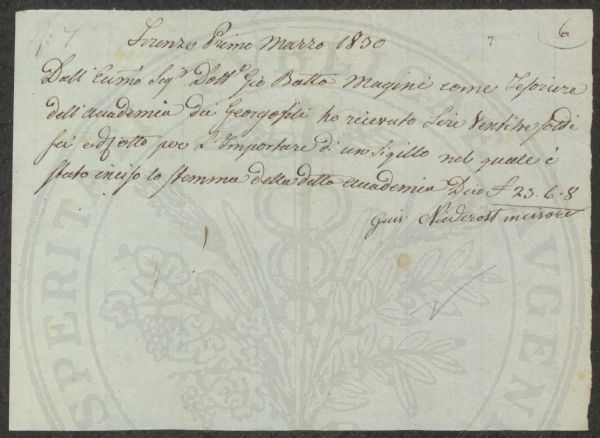 7
7.
6
Firenze Primo Marzo 1830
Dall' Ecmo Sigr Dottr Gio Batta Magini come Tesoriere
dell'accademia dei Georgofili ho ricevuto Lire Ventitre soldi
sei e d otto per L'Importare di un Sigillo nel quale è
stato inciso lo stemma della detta accademia Dico £ 23. 6. 8
Giu: Niederost incisore
PROSPERITATI
AVGENDAE